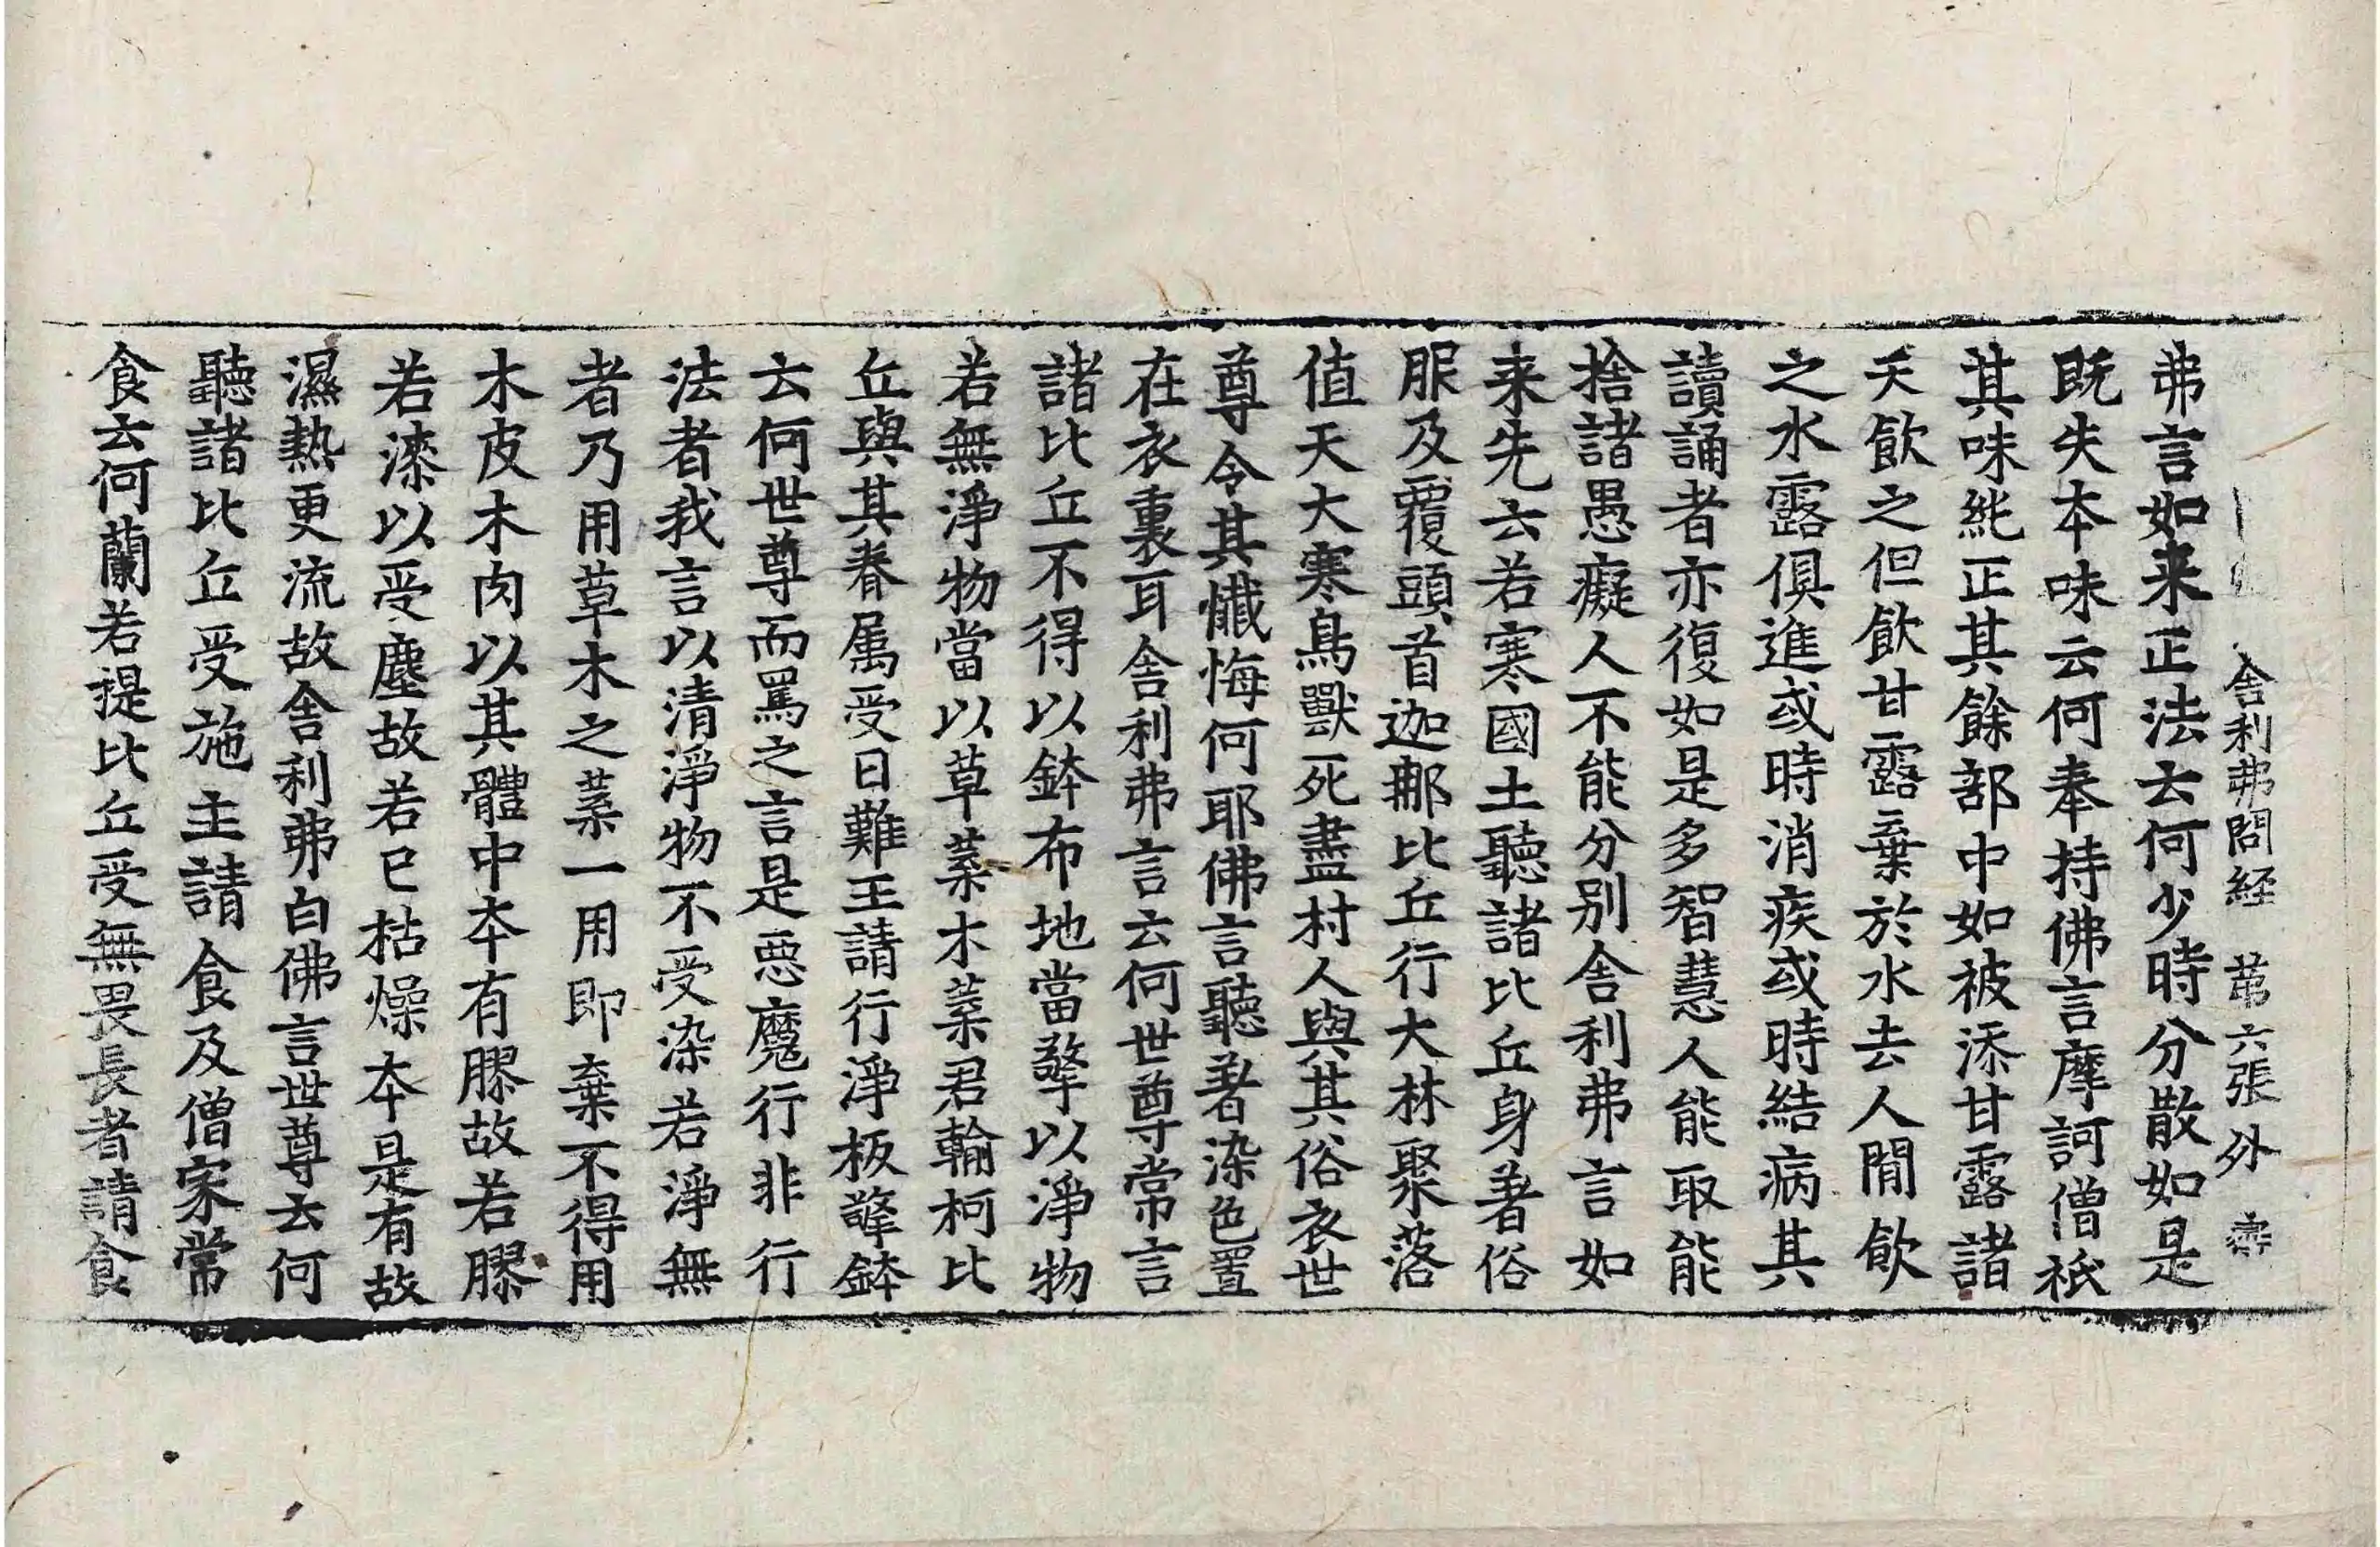 舍利弗問経 苐六張 外
弗言如来正法云何少時分散如是
既失夲味云何奉持佛言摩訶僧祇
其味純正其餘部中如被添甘露諸
天飲之但飲甘露棄於水去人閒飲
之水露俱進或時消疾或時結病其
讀誦者亦復如是多智慧人能取能
捨諸愚癡人不能分別舍利弗言如
来先云若寒國土聽諸比丘身著俗
服及覆頭首迦郍比丘行大林聚落
值天大寒鳥獸死盡村人與其俗衣世
尊令其懺悔何耶佛言聽著染色置
在衣裏耳舍利弗言云何世尊常言
諸比丘不得以鉢布地當擎以淨物
若無淨物當以草葉木葉君輸柯比
丘與其眷属受日難王請行淨板擎鉢
云何世尊而罵之言是惡魔行非行
法者我言以清淨物不受染若淨無
者乃用草木之葉一用即棄不得用
木皮木肉以其體中夲有膠故若膠
若漆以受塵故若已枯燥夲是有故
濕熱更流故舍利弗白佛言世尊云何
聽諸比丘受施主請食及僧家常
食云何蘭若提比丘受無畏長者請食